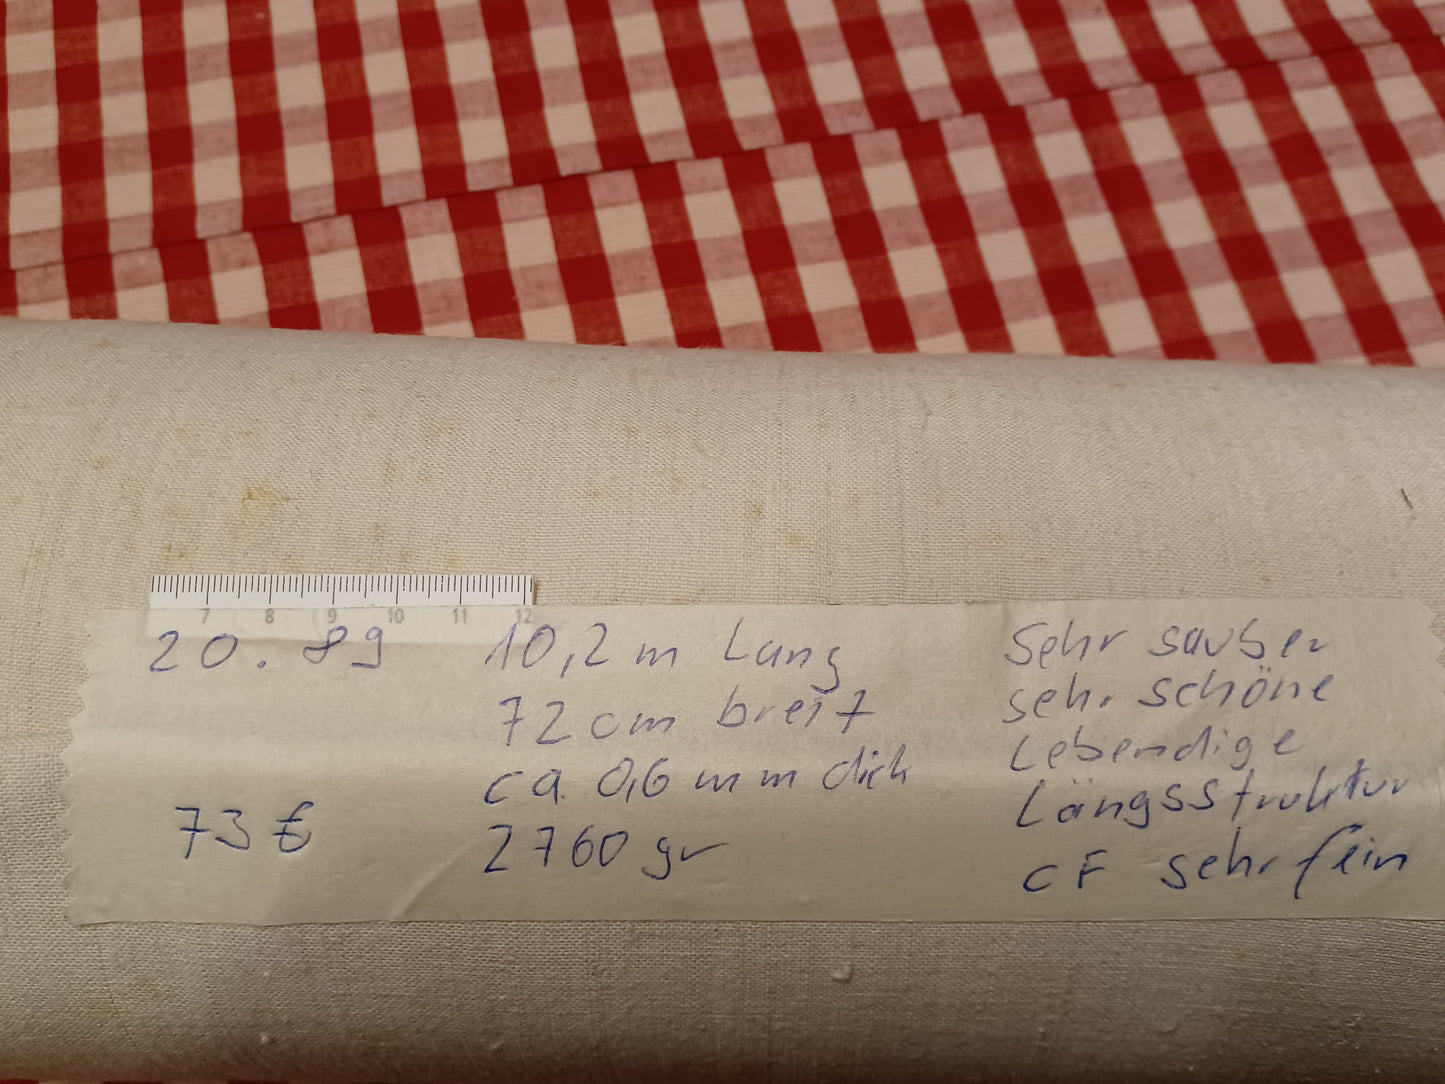 7 8 9 10 11 12
20.89
73 €
10,2 m Lang
72 cm breit
ca. 0,6 mm dick
2760 gr
Sehr sauber
sehr schöne
Lebendige
Längsstruktur
CF sehr fein